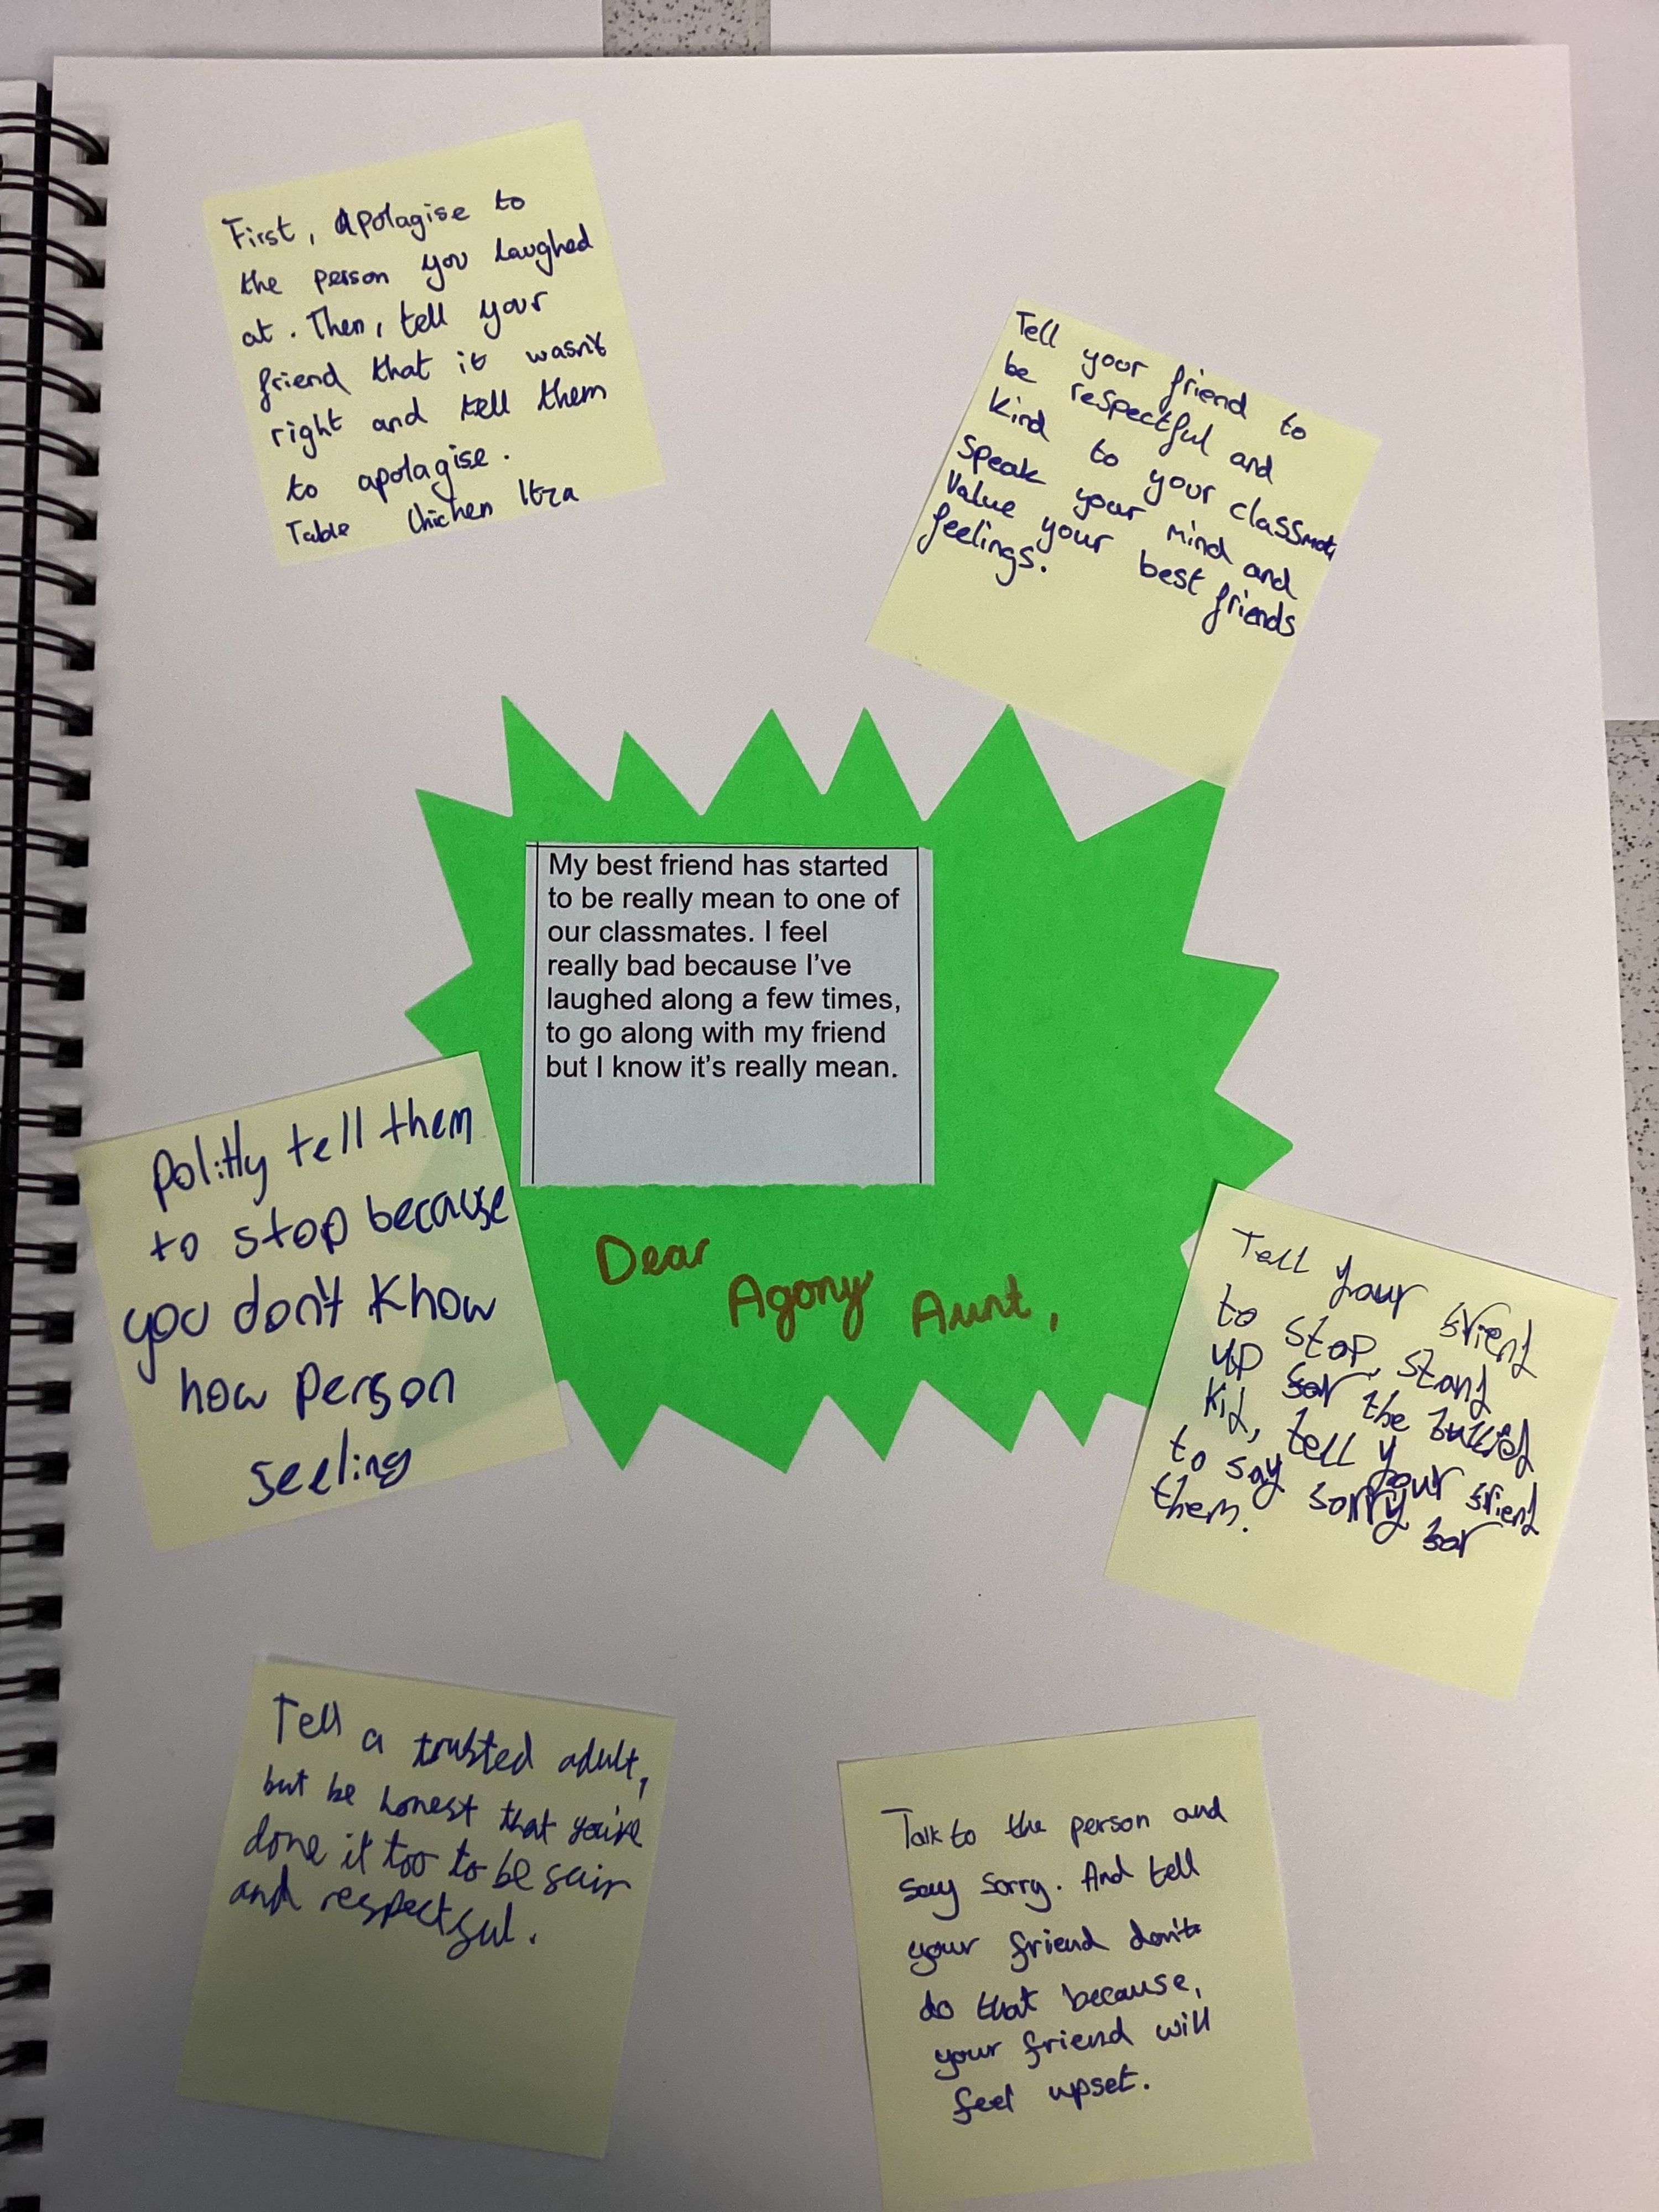 First, Apolagise to
the person you laughed
at. Then, tell your
friend that it wasn't
right and tell them
to apolagise.
Table Chicken
Tell your friend to
be respectful and
kind to your classmate
speak your mind and
value your best friends
feelings.
My best friend has started
to be really mean to one of
our classmates. I feel
really bad because I've
laughed along a few times,
to go along with my friend
but I know it's really mean.
Dear
Agony Aunt,
Politly tell them
to stop because
you don't know
how person
feeling
Tell your frient
to stop, stand
up for the bullied
kid, tell your friend
to say sorry for
them.
Tell a trusted adult,
but be honest that you've
done it too to be fair
and respectful.
Talk to the person and
say sorry. And tell
your friend don't
do that because,
your friend will
feel upset.